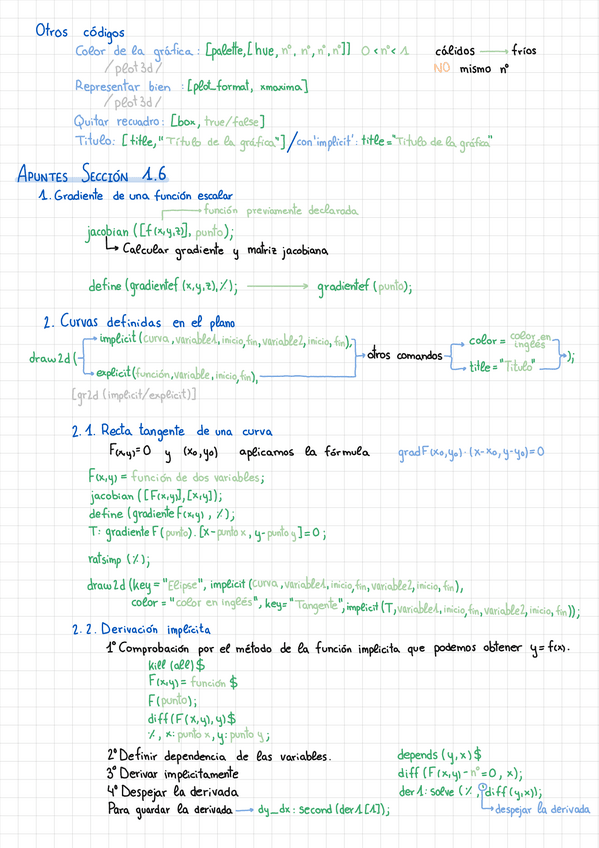 Otros códigos
Color de la gráfica: [palette,[hue, nº, nº, nº, nº]] 0<nº<1 cálidos → fríos
/plot3d/ NO mismo nº
Representar bien: [plot_format, xmaxima]
/plot3d/
Quitar recuadro: [box, true/false]
Título: [title,"Título de la gráfica"]/con 'implicit': title="Título de la gráfica"
APUNTES SECCIÓN 1.6
1. Gradiente de una función escalar
función previamente declarada
jacobian ([f(x,y,z)], punto);
Calcular gradiente y matriz jacobiana
define (gradientef (x,y,z),%); → gradientef (punto);
2. Curvas definidas en el plano
implicit (curva, variable1, inicio, fin, variable2, inicio, fin), color = color en inglés
draw2d ( otros comandos );
explicit (función, variable, inicio, fin), title = "Título"
[gr2d (implicit/explicit)]
2.1. Recta tangente de una curva
F(x,y)=0 y (x₀,y₀) aplicamos la fórmula gradF(x₀,y₀)·(x-x₀, y-y₀)=0
F(x,y) = función de dos variables;
jacobian ([F(x,y)],[x,y]);
define (gradienteF(x,y), %);
T: gradienteF(punto).[x-punto x, y-punto y]=0;
ratsimp (%);
draw2d (key = "Elipse", implicit (curva, variable1, inicio, fin, variable2, inicio, fin),
color = "color en inglés", key= "Tangente", implicit (T, variable1, inicio, fin, variable2, inicio, fin));
2.2. Derivación implícita
1º Comprobación por el método de la función implícita que podemos obtener y=f(x).
kill (all)$
F(x,y) = función $
F(punto);
diff (F(x,y),y)$
%, x: punto x, y: punto y;
2º Definir dependencia de las variables. depends (y,x)$
3º Derivar implícitamente diff (F(x,y)-nº=0, x);
4º Despejar la derivada der1: solve (%, 'diff(y,x));
Para guardar la derivada → dy_dx: second (der1[1]); despejar la derivada